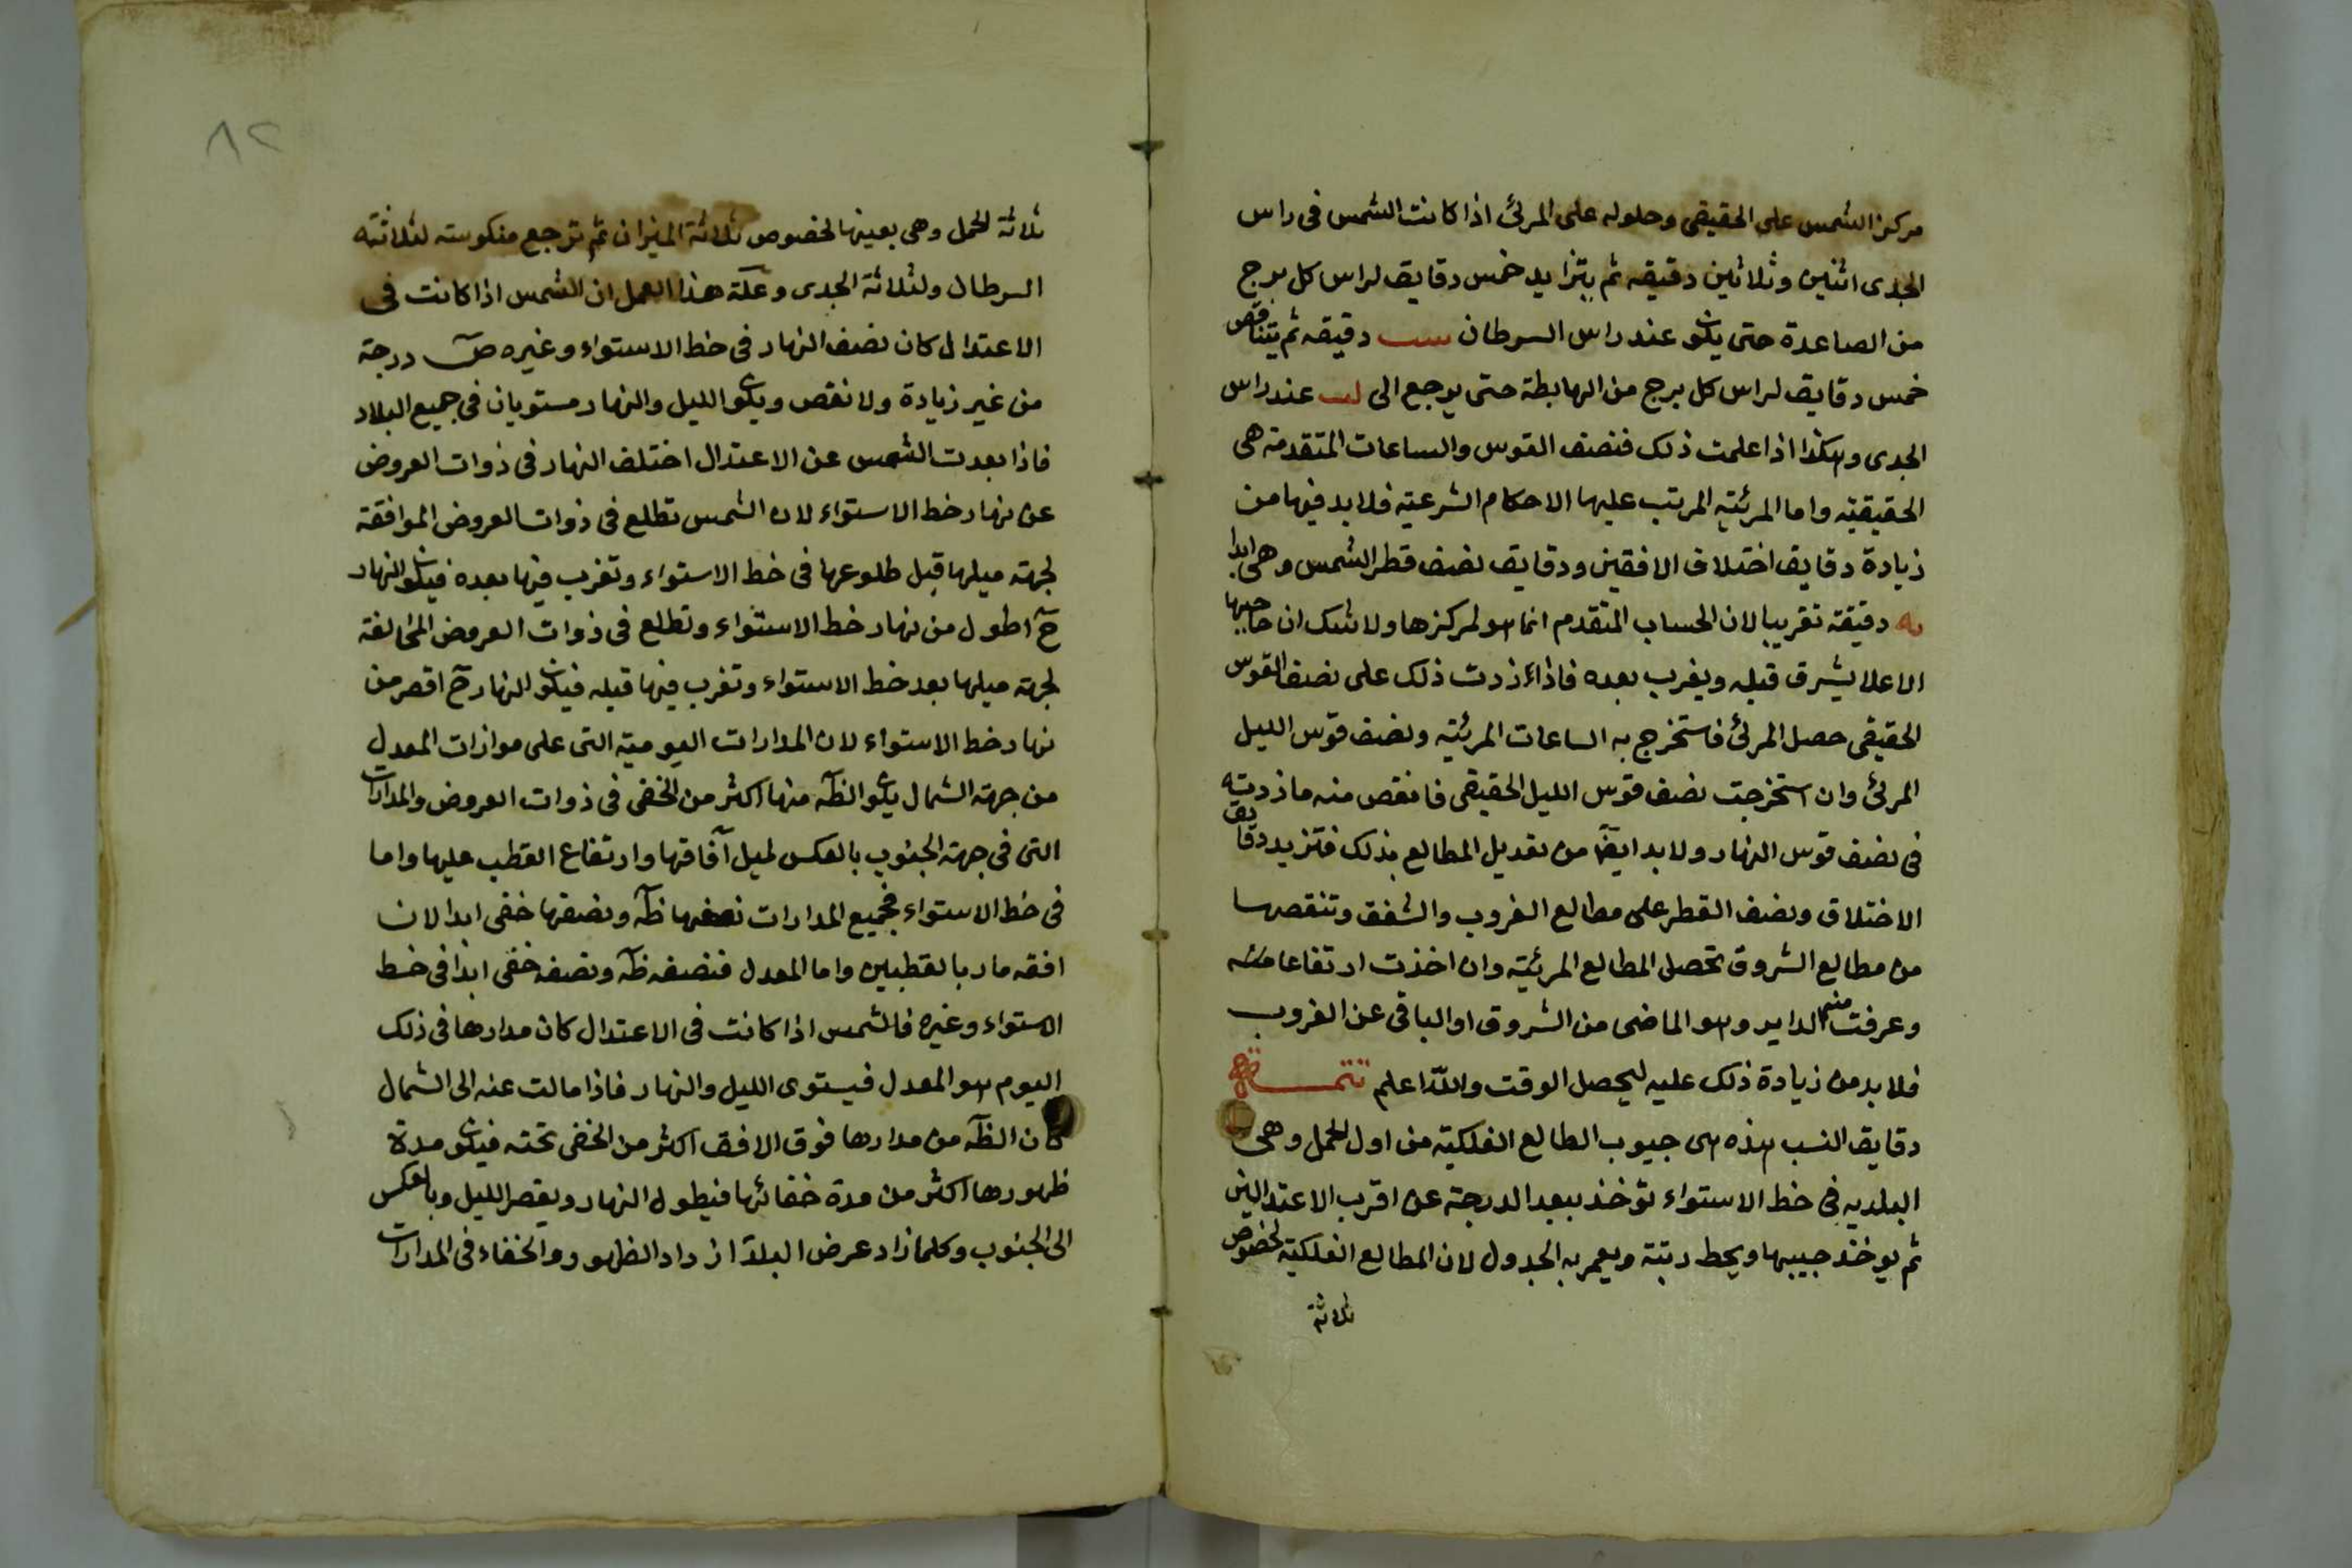 مركز الشمس على الحقيقى وحلوله على المرئ اذا كانت الشمس فى راس
الجدى اثنين وثلاثين دقيقه ثم يتزايد خمس دقايق لراس كل برج
من الصاعدة حتى يكون عند راس السرطان سب دقيقه ثم يتناقص
خمس دقايق لراس كل برج من الهابطة حتى يرجع الى لب عند راس
الجدى وهكذا اذا علمت ذلك فنصف القوس والساعات المتقدمة هى
الحقيقية واما المرئية المرتب عليها الاحكام الشرعية فلا بد فيها من
زيادة دقايق اختلاف الافقين ودقايق نصف قطر الشمس وهى ابدا
يه دقيقة تقريبا لان الحساب المتقدم انما هو لمركزها ولا شك ان حاجبها
الاعلا يشرق قبله ويغرب بعده فاذا زدت ذلك على نصف القوس
الحقيقى حصل المرئ فاستخرج به الساعات المرئية ونصف قوس الليل
المرئ وان استخرجت نصف قوس الليل الحقيقى فانقص منه ما زدته
فى نصف قوس النهار ولا بد ايضا من تعديل المطالع بذلك فتزيد دقايق
الاختلاف ونصف القطر على مطالع الغروب والشفق وتنقصها
من مطالع الشروق تحصل المطالع المرئية وان اخذت ارتفاعا
وعرفت منه الداير وهو الماضى من الشروق او الباقى عن الغروب
فلا بد من زيادة ذلك عليه ليحصل الوقت والله اعلم تتمـــة
دقايق النسب هذه هى جيوب المطالع الفلكية من اول الحمل وهى
البلديه فى خط الاستواء تؤخذ ببعد الدرجة عن اقرب الاعتدالين
ثم يوخذ جيبها ويحط رتبة ويعمر به الجدول لان المطالع الفلكية لخصوص
ثلاثة
٨٢
ثلاثة الحمل وهى بعينها لخصوص ثلاثة الميزان ثم ترجع منكوسته لثلاثة
السرطان ولثلاثة الجدى وعلة هذا العمل ان الشمس اذا كانت فى
الاعتدال كان نصف النهار فى خط الاستواء وغيره صـ درجة
من غير زيادة ولا نقص ويكون الليل والنهار مستويان فى جميع البلاد
فاذا بعدت الشمس عن الاعتدال اختلف النهار فى ذوات العروض
عن نهار خط الاستواء لان الشمس تطلع فى ذوات العروض الموافقة
لجهة ميلها قبل طلوعها فى خط الاستواء وتغرب فيها بعده فيكون النهار
ح اطول من نهار خط الاستواء وتطلع فى ذوات العروض المخالفة
لجهة ميلها بعد خط الاستواء وتغرب فيها قبله فيكون النهار ح اقصر من
نهار خط الاستواء لان المدارات اليومية التى على موازات المعدل
من جهة الشمال يكون الظه منها اكثر من الخفى فى ذوات العروض والمدارات
التى فى جهة الجنوب بالعكس لميل آفاقها وارتفاع القطب عليها واما
فى خط الاستواء فجميع المدارات نصفها ظه ونصفها خفى ابدا لان
افقه مار بالقطبين واما المعدل فنصفه ظه ونصفه خفى ابدا فى خط
الاستواء وغيره فالشمس اذا كانت فى الاعتدال كان مدارها فى ذلك
اليوم هو المعدل فيستوى الليل والنهار فاذا مالت عنه الى الشمال
كان الظه من مدارها فوق الافق اكثر من الخفى تحته فيكون مدة
ظهورها اكثر من مدة خفائها فيطول النهار ويقصر الليل وبالعكس
الى الجنوب وكلما زاد عرض البلد ازداد الظهور والخفاء فى المدارات